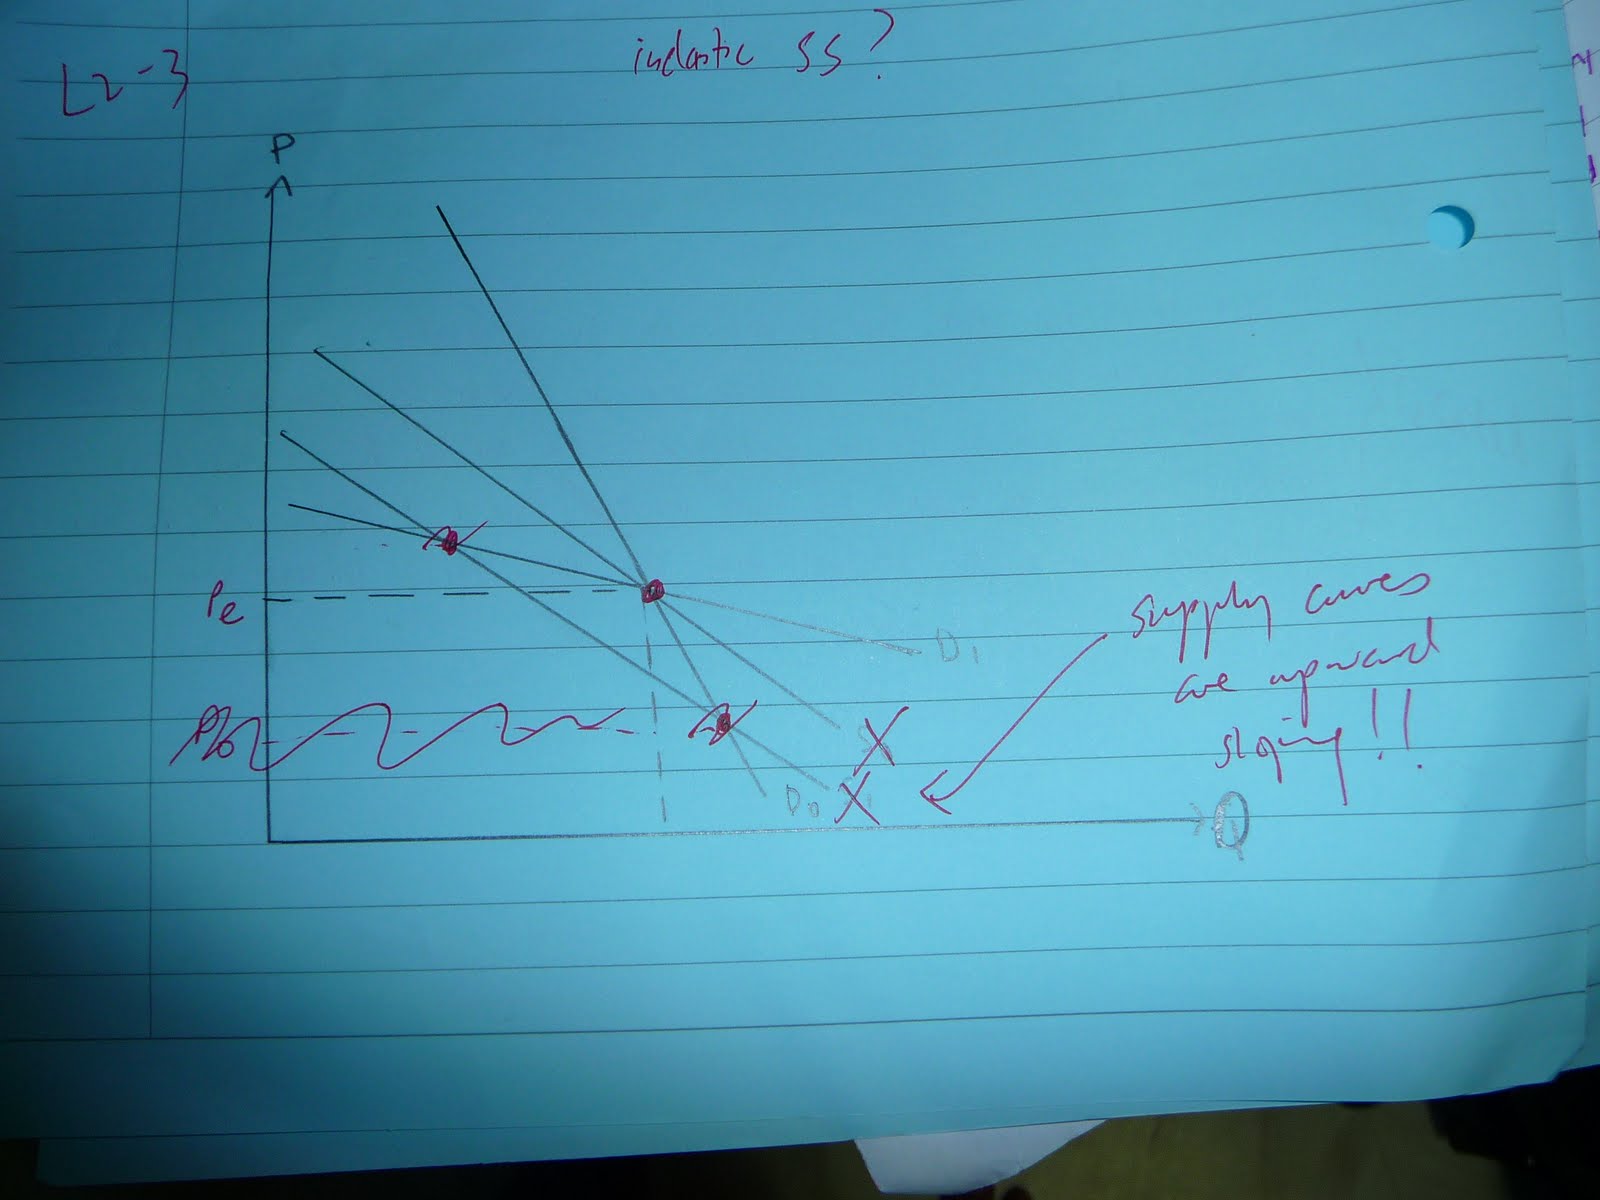 L2-3
inelastic SS?
P
Pe
D1
supply curves
are upward
sloping!!
P0
X
D0 X
Q